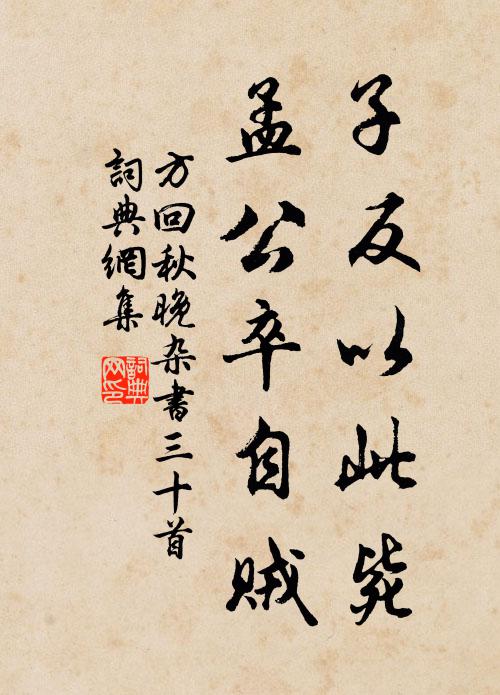 子反以此毙
孟公卒自贼
方回秋晚杂书三十首
詞典網集
詞典网印